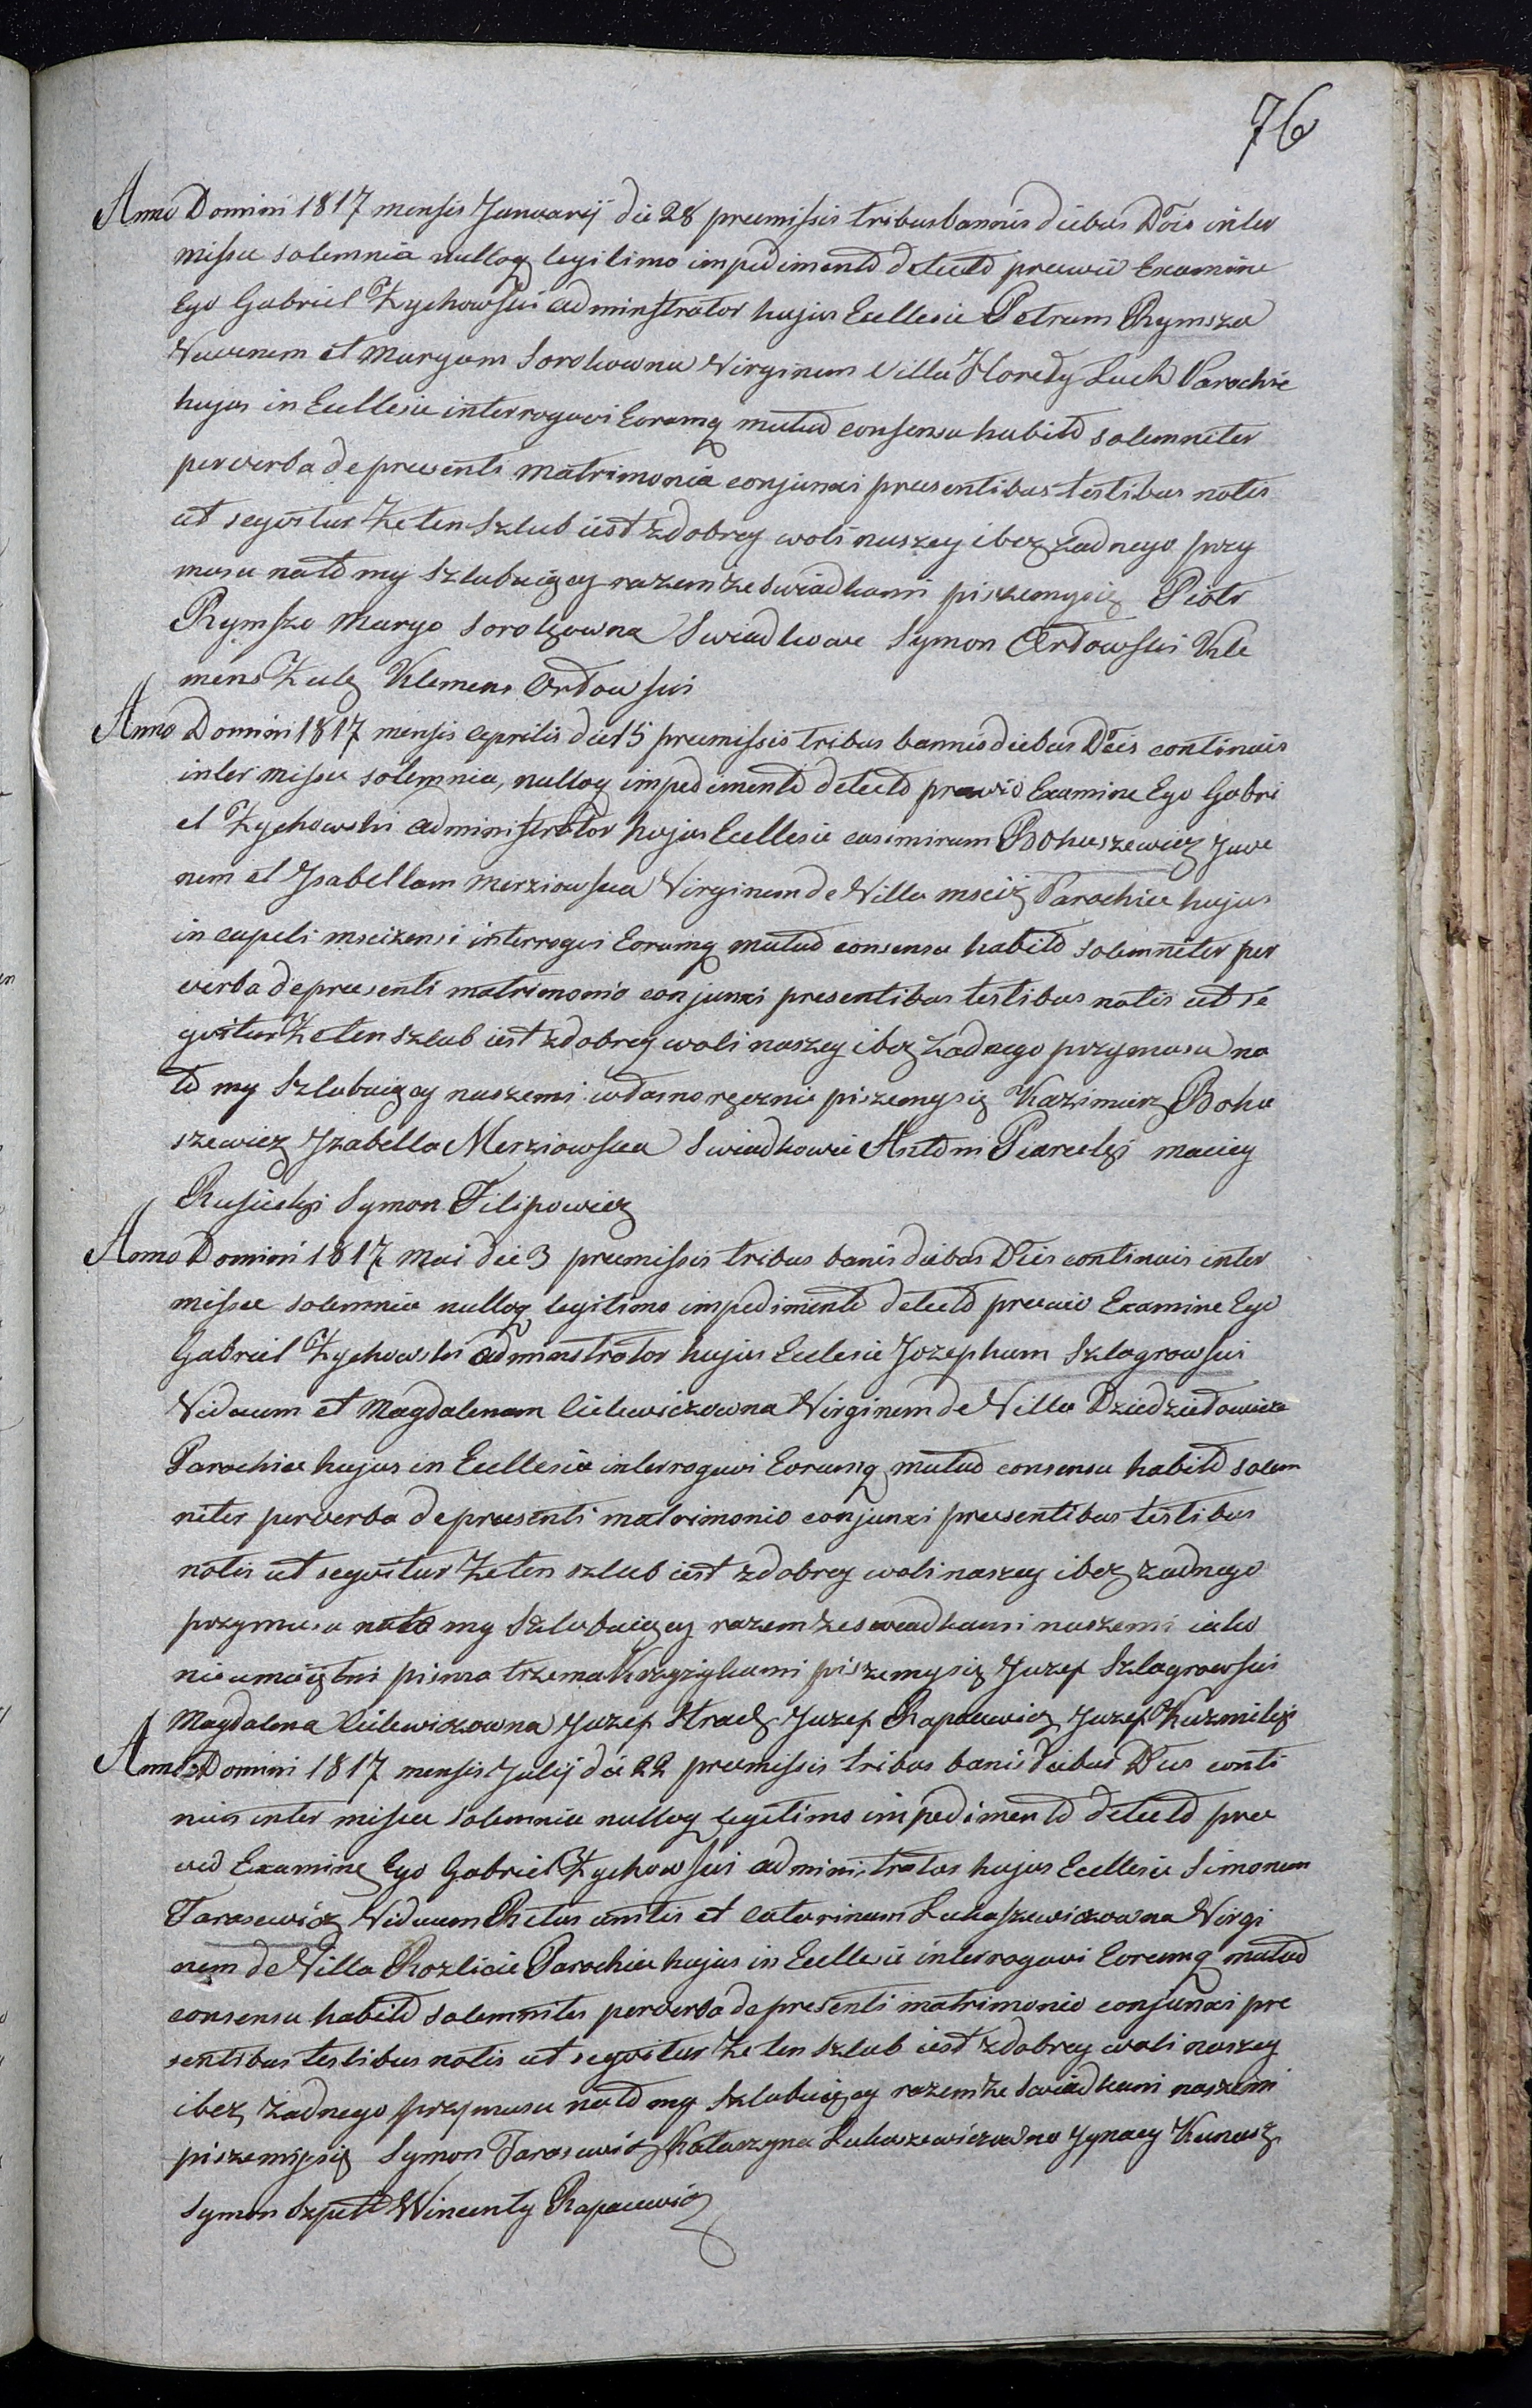 76
Anno Domini 1817 mensis Januarij die 28 premissis tribus bannis diebus Dōis inter
missae solemnia nulloq legitimo impedimento detecto praevio Examine
Ego Gabriel Zychowski administrator hujus Ecllesie Petrum Rymsza
Juvenem et Maryam Sorokowna Virginem Villa Horedy Parochie
hujus in Ecllesie interrogavi Eorumq mutuo consensu habito solemniter
per verba de presenti matrimonia conjunxi praesentibus testibus notis
ut segvitur Ze ten Szlub iest z dobrey woli naszey i bez żadnego przy
musu na to my Szlubuięcy razem ze swiadkami piszemysię Piotr
Rymszo Maryo Sorokowna Swiadkowe Symon Ordowski Kle
mens Zulz Klemens Ordowski
Anno Domini 1817 mensis Aprilis die 15 praemissis tribus bannis diebus Dēis continuis
inter missae solemnia, nulloq impedimento detecto prævio Examine Ego Gabri
el Zychowski administrator hujus Ecllesie casimirum Bohuszewicz Juve
nem et Jsabellam Merziowska Virginem de Villa msciż Parochiae hujus
in capeli mscizensi interrogvi Eorumq mutuo consensu habito solemniter per
verba de praesenti matrimonio conjunxi presentibus testibus notis ut se
gvitur Ze ten szlub iest z dobrey woli naszey i bez żadnego przymusu na
to my Szlubuięcy naszemi własnoręcznie piszemysię Kazimierz Bohu
szewicz Jzabella Merziowska Swiadkowie Antoni Piarclzi maciey
Rusiecki Symon Filipowicz
Anno Domini 1817 Mai die 3 praemissis tribus banis diebus Dēis continuis inter
missae solemnia nulloq legitimo impedimento detecto praevio Examine Ego
Gabriel Zychowski administrator hujus Eclesie Jozephum Szlagrowski
Viduum et Magdalenam Cielewiczowna Virginem de Villa Dziedziełowicze
Parochiae hujus in Ecllesie interrogavi Eorumq mutuo consensu habito solem
niter per verba de praesenti matrimonio conjunxi praesentibus testibus
notis ut segvitur Ze ten szlub iest z dobrey woli naszey i bez żadnego
przymusu na to my Szlubuięcy razem ze swiadkami naszemi iako
nieumieiętni pisma trzema Krzyżykami piszemysię Juzef Szlagrowski
Magdalena Cielewiczowna Juzef Strach Juzef Rapacewicz Juzef Kuzmicki
Anno Domini 1817 mensis Julij die 22 praemissis tribus banis diebus Dēis conti
nuis inter missae solemnia nulloq legitimo impedimento detecto prae
vio Examine Ego Gabriel Zychowski administrator hujus Ecllesie Simonem
Tarasewicz Viduum Ritus unitis et Catarinam Lukaszewiczowna Virgi
nem de Villa Rozlicie Parochiae hujus in Ecllesie interrogavi Eorumq mutuo
consensu habito solemniter per verba de presenti matrimonio conjunxi pre
sentibus testibus notis ut segvitur Ze ten szlub iest z dobrey woli naszey
i bez żadnego przymusu na to my Szlubuięcy razem ze swiadkami naszemi
piszemysię Symon Tarasewicz Katarzyna Lukaszewiczowno Jgnacy Kunasz
Symon Szpett Wincenty Rapacewicz